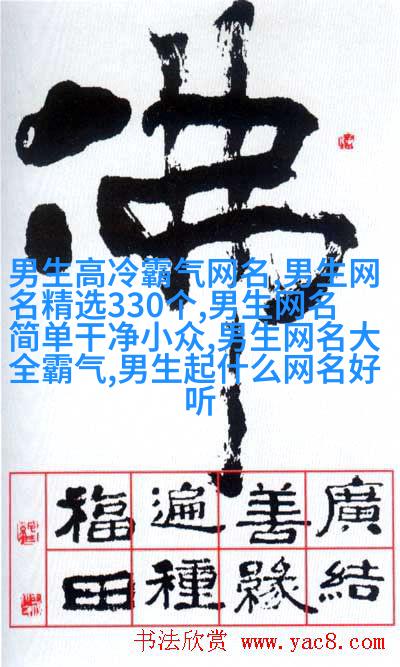 佛
男生高冷霸气网名,男生网
名精选330个,男生网名
简单干净小众,男生网名大
全霸气,男生起什么网名好
听
廣結
善緣
遍種
福田
书法欣赏 www.yac8.com